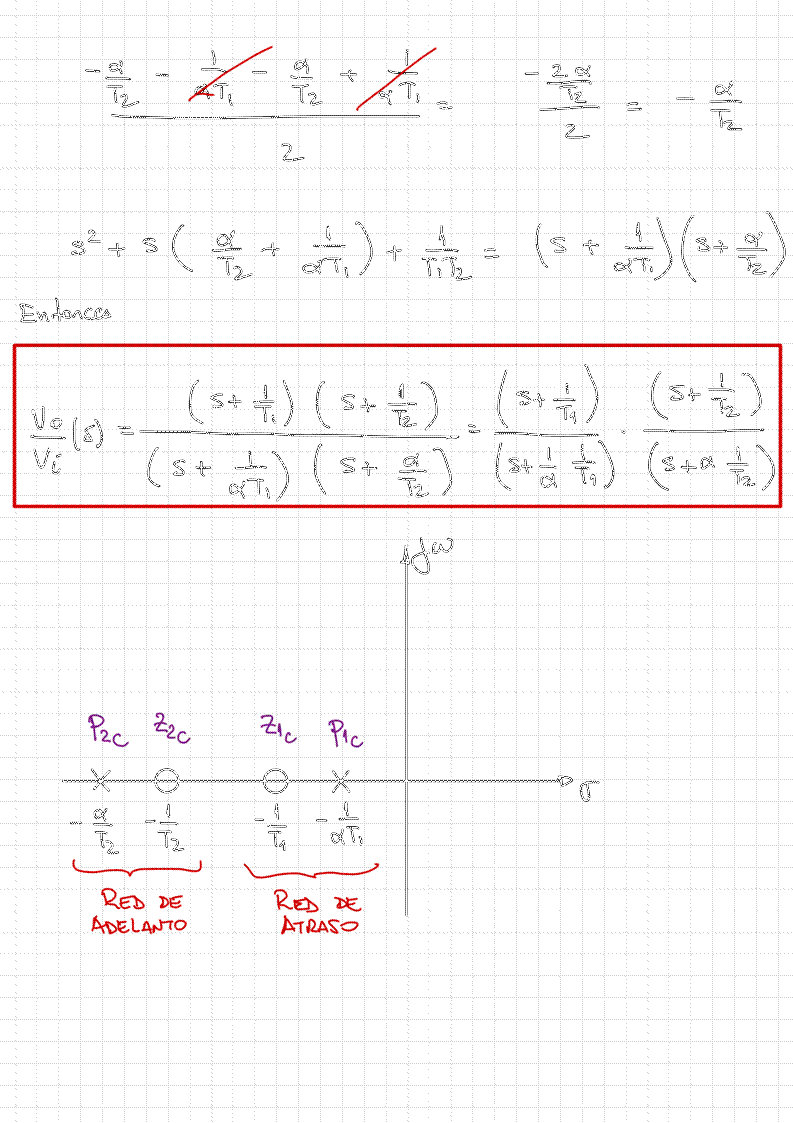 (-α/T₂ - 1/(αT₁) - α/T₂ + 1/(αT₁))/2 = (-2α/T₂)/2 = -α/T₂
s² + s(α/T₂ + 1/(αT₁)) + 1/(T₁T₂) = (s + 1/(αT₁))(s + α/T₂)
Entonces
Vo/Vi (s) = (s + 1/T₁)(s + 1/T₂)/((s + 1/(αT₁))(s + α/T₂)) = (s + 1/T₁)/(s + 1/α 1/T₁) · (s + 1/T₂)/(s + α 1/T₂)
jω
P2c Z2c Z1c P1c
σ
-α/T₂ -1/T₂ -1/T₁ -1/(αT₁)
RED DE RED DE
ADELANTO ATRASO